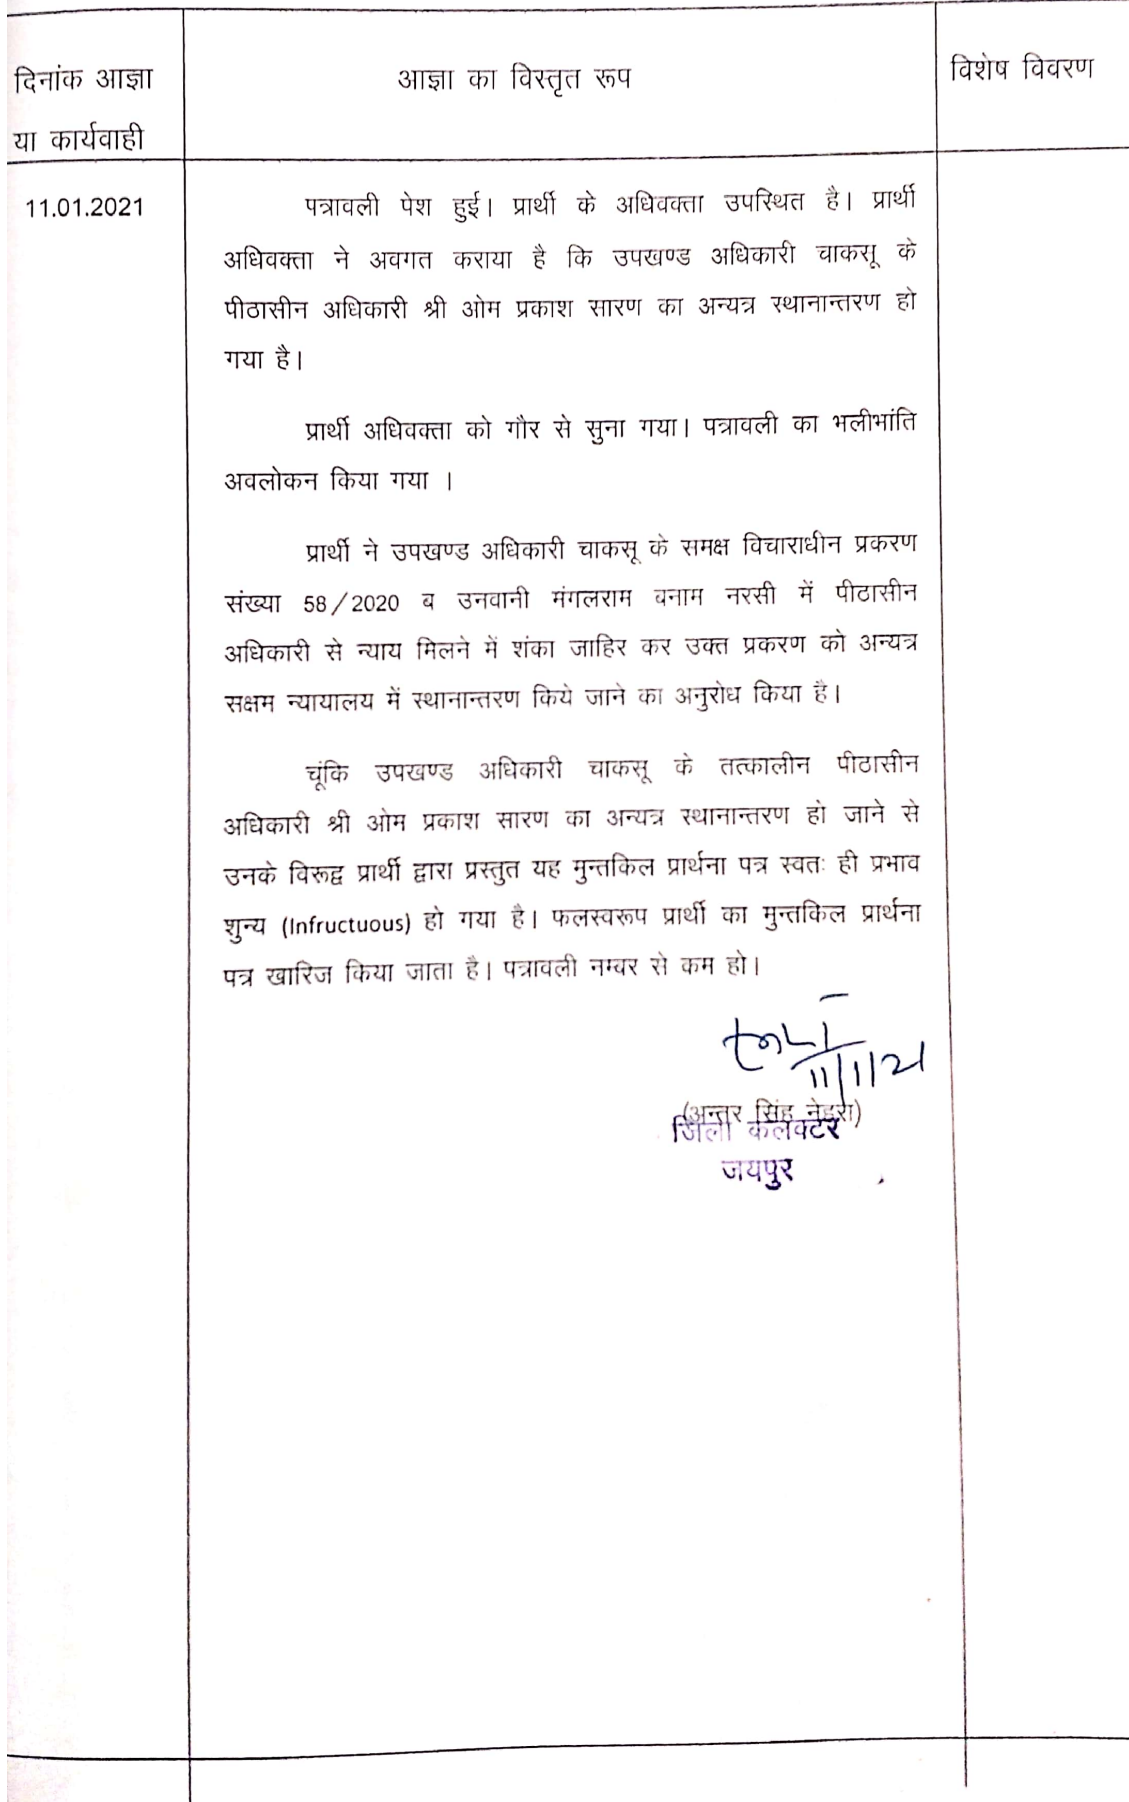 दिनांक आज्ञा
या कार्यवाही
आज्ञा का विस्तृत रूप
विशेष विवरण
11.01.2021
पत्रावली पेश हुई। प्रार्थी के अधिवक्ता उपस्थित है। प्रार्थी
अधिवक्ता ने अवगत कराया है कि उपखण्ड अधिकारी चाकसू के
पीठासीन अधिकारी श्री ओम प्रकाश सारण का अन्यत्र स्थानान्तरण हो
गया है।
प्रार्थी अधिवक्ता को गौर से सुना गया। पत्रावली का भलीभांति
अवलोकन किया गया ।
प्रार्थी ने उपखण्ड अधिकारी चाकसू के समक्ष विचाराधीन प्रकरण
संख्या 58/2020 ब उनवानी मंगलराम बनाम नरसी में पीठासीन
अधिकारी से न्याय मिलने में शंका जाहिर कर उक्त प्रकरण को अन्यत्र
सक्षम न्यायालय में स्थानान्तरण किये जाने का अनुरोध किया है।
चूंकि उपखण्ड अधिकारी चाकसू के तत्कालीन पीठासीन
अधिकारी श्री ओम प्रकाश सारण का अन्यत्र स्थानान्तरण हो जाने से
उनके विरूद्व प्रार्थी द्वारा प्रस्तुत यह मुन्तकिल प्रार्थना पत्र स्वतः ही प्रभाव
शुन्य (Infructuous) हो गया है। फलस्वरूप प्रार्थी का मुन्तकिल प्रार्थना
पत्र खारिज किया जाता है। पत्रावली नम्बर से कम हो।
11/1/21
(अन्तर सिंह नेहरा)
जिला कलक्टर
जयपुर